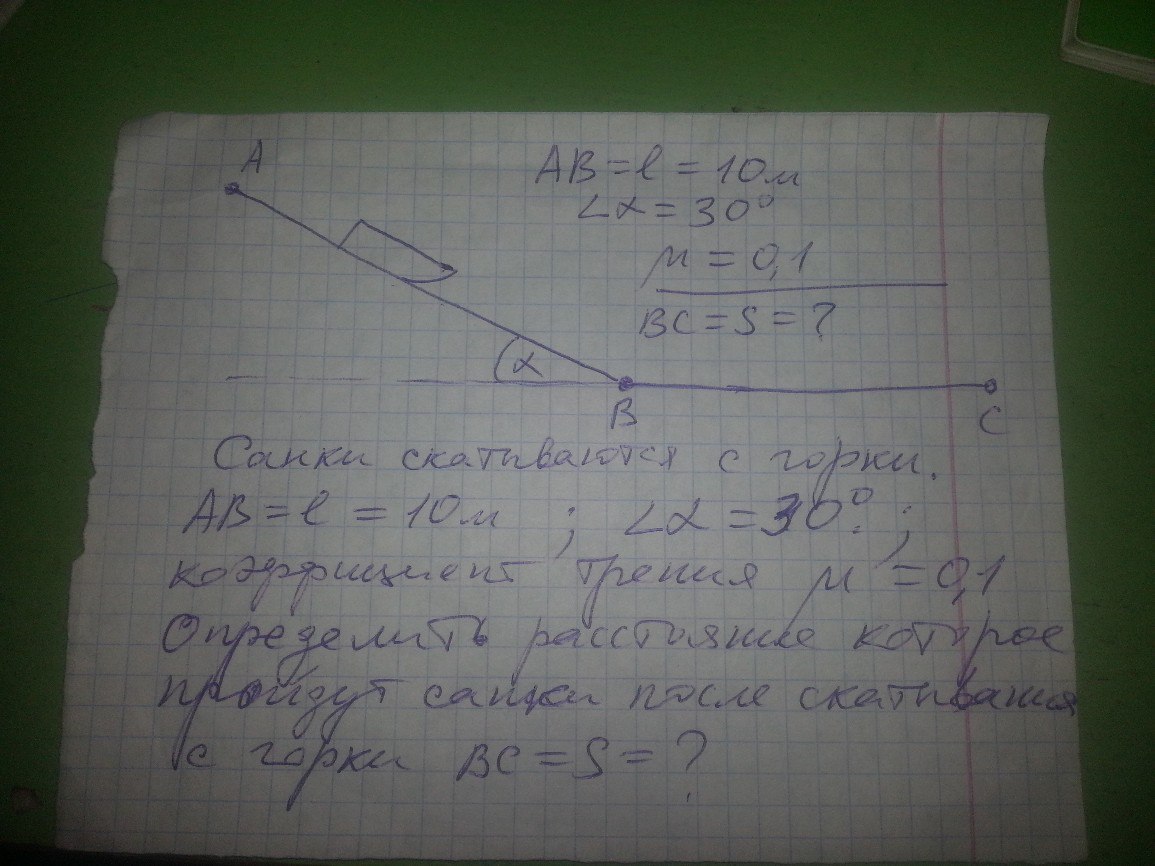 A
AB = l = 10м
∠α = 30°
μ = 0,1
BC = S = ?
α
B
C
Санки скатываются с горки.
AB = l = 10м ; ∠α = 30° ;
коэффициент трения μ = 0,1
Определить расстояние которое
пройдут санки после скатывания
с горки BC = S = ?